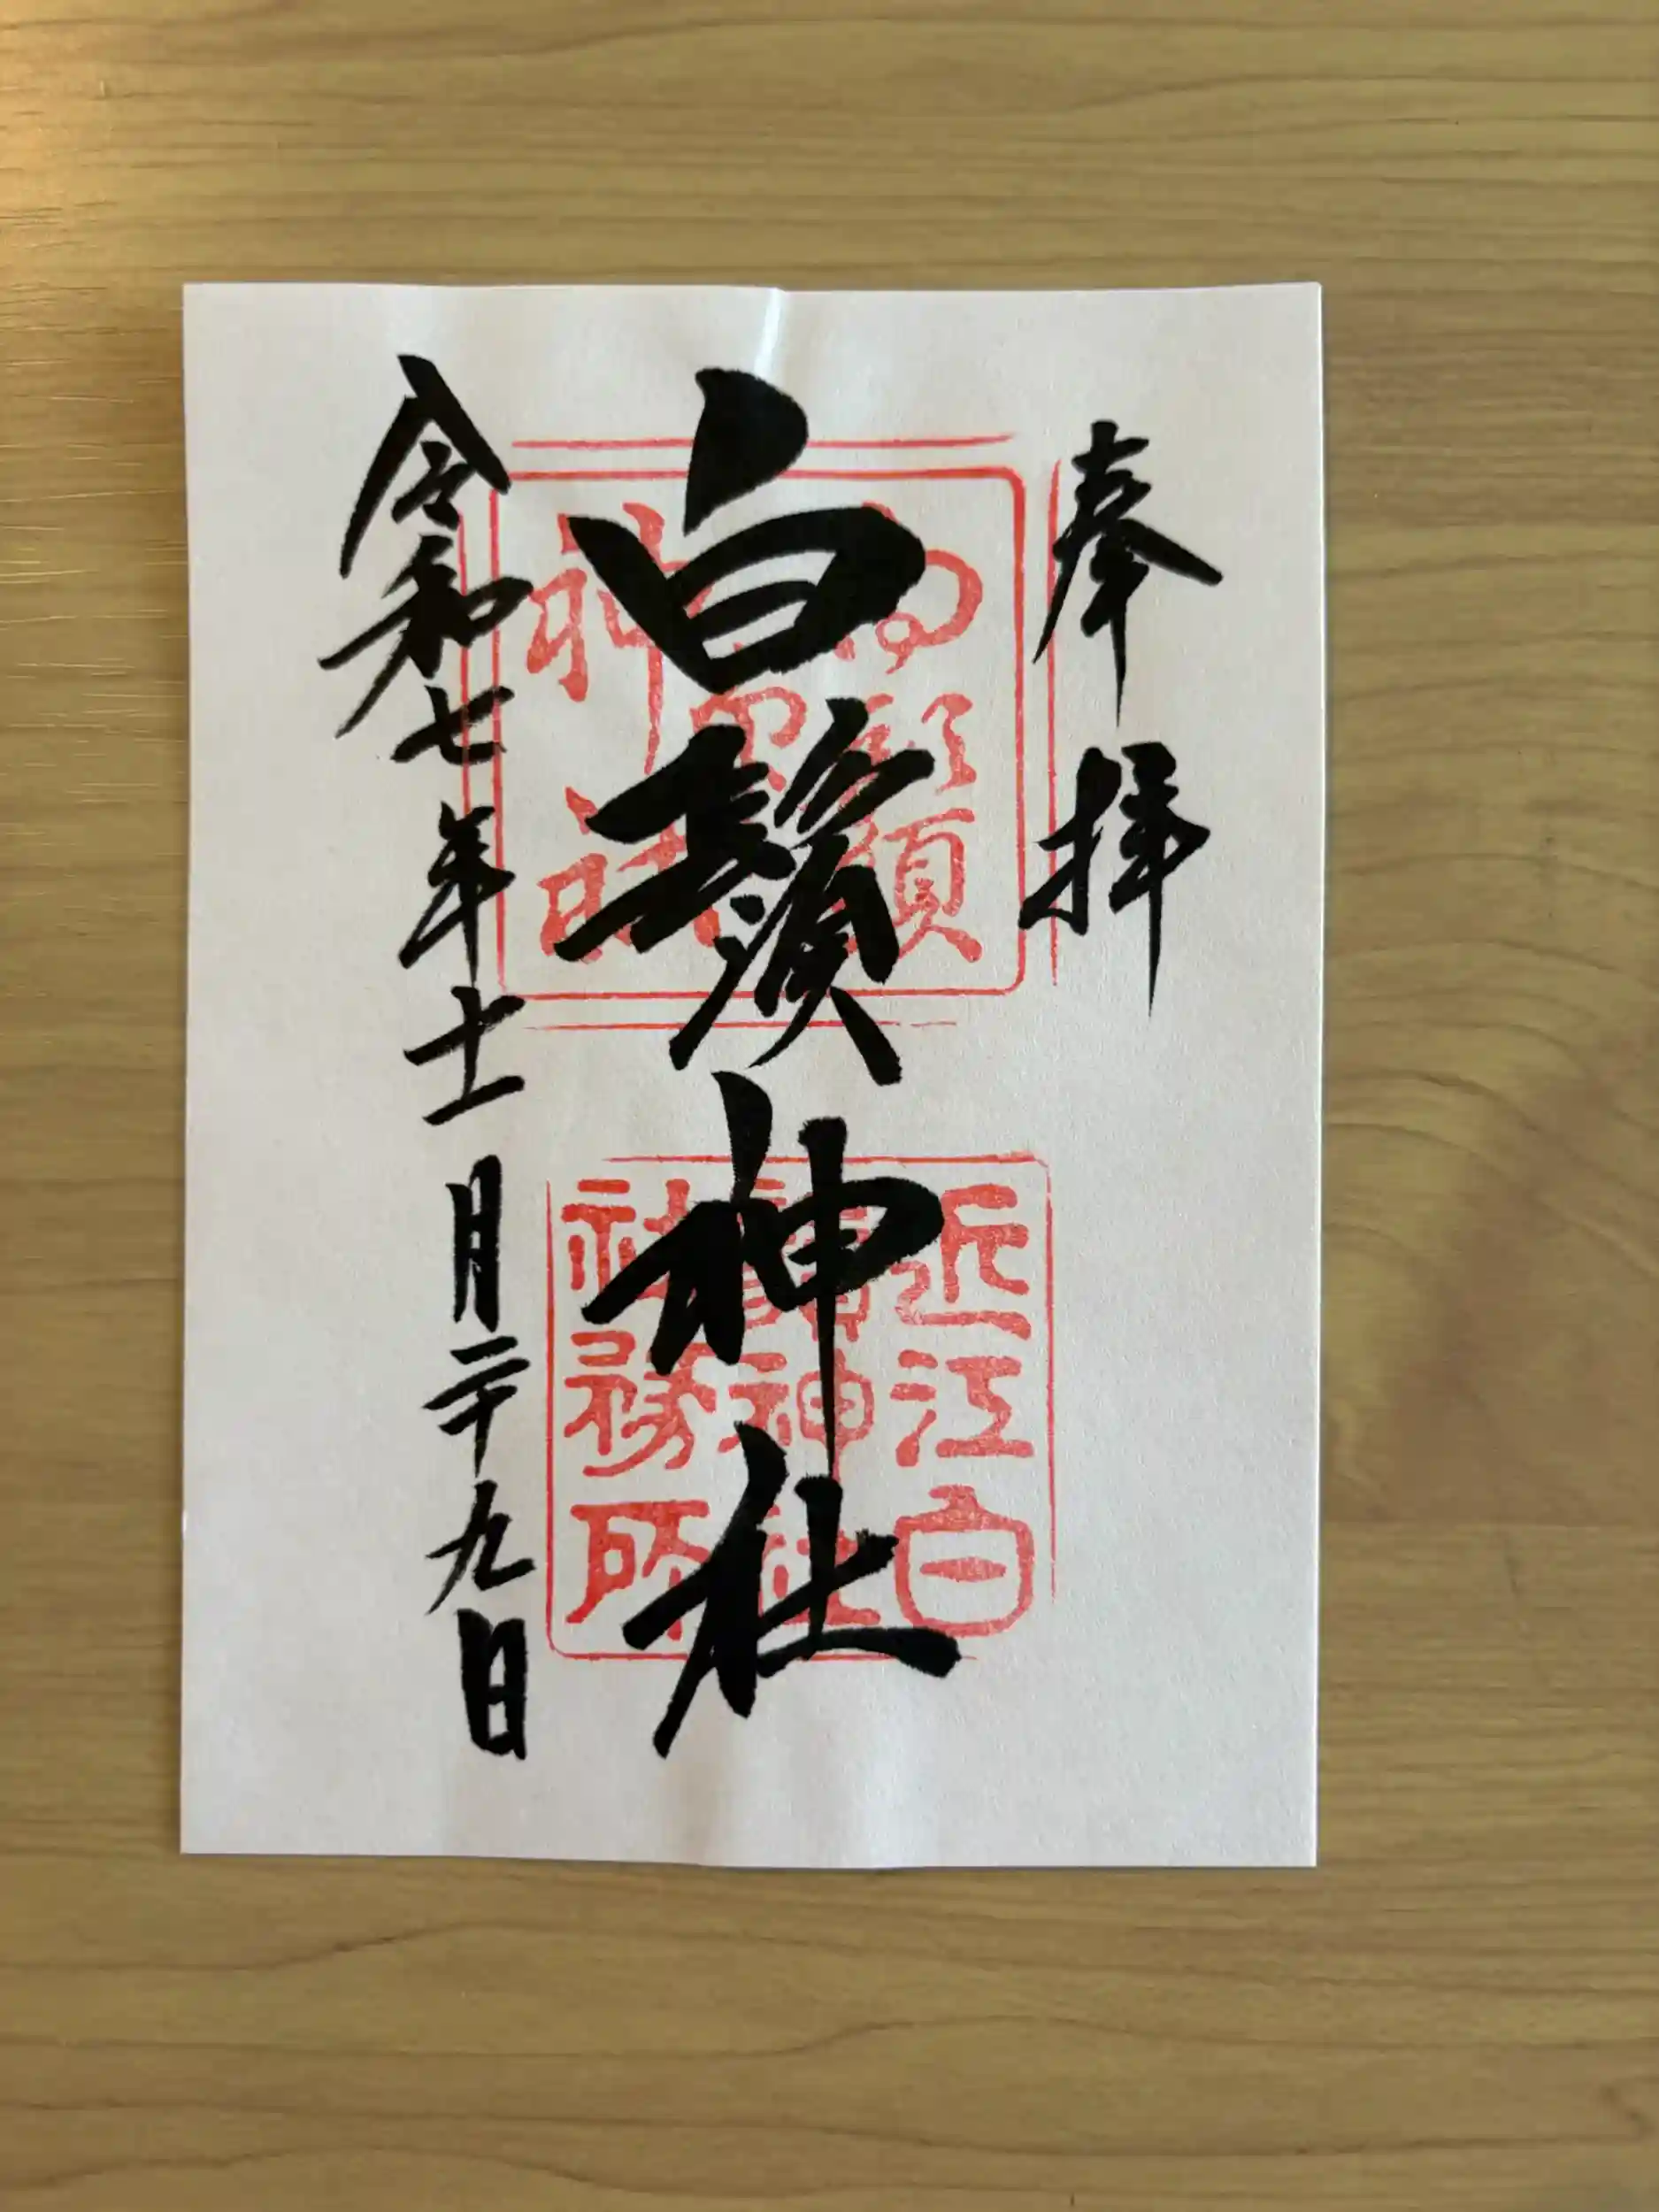 奉拝
白鬚神社
令和七年十一月二十九日
近江白
鬚神社
社務所